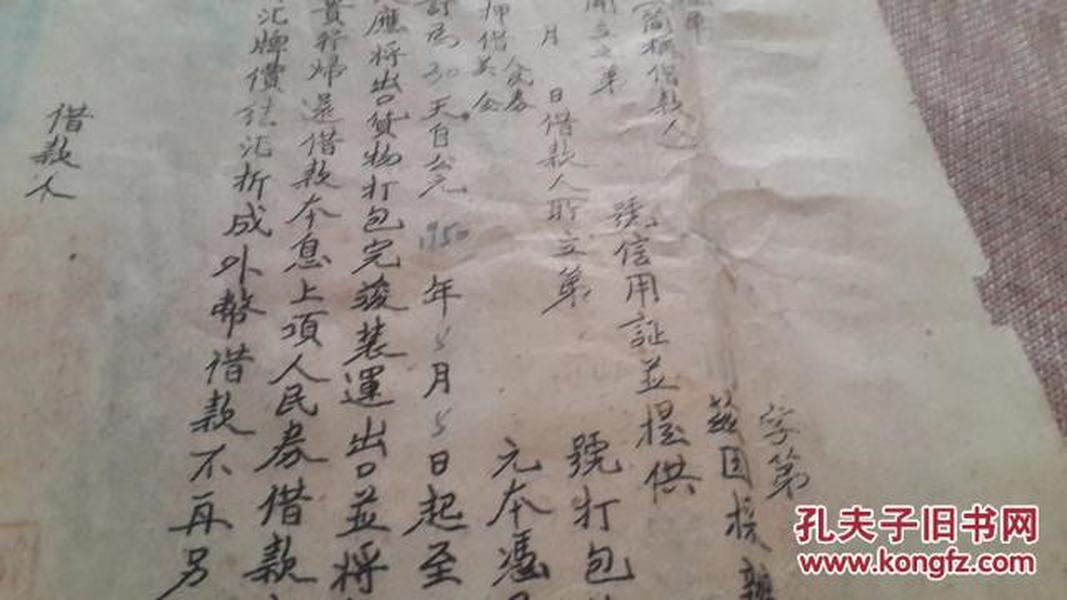 字第
茲因
(簡称借款人)
號信用証並提供
月 日借款人所立第
號打包
押借美金
人民券
元本憑
訂為30天自公元1950年5月5日起至
應將出口貨物打包完竣裝運出口並將
貴行歸還借款本息上項人民券借款
汇牌價結汇折成外幣借款不再另
借款人
孔夫子旧书网
www.kongfz.com